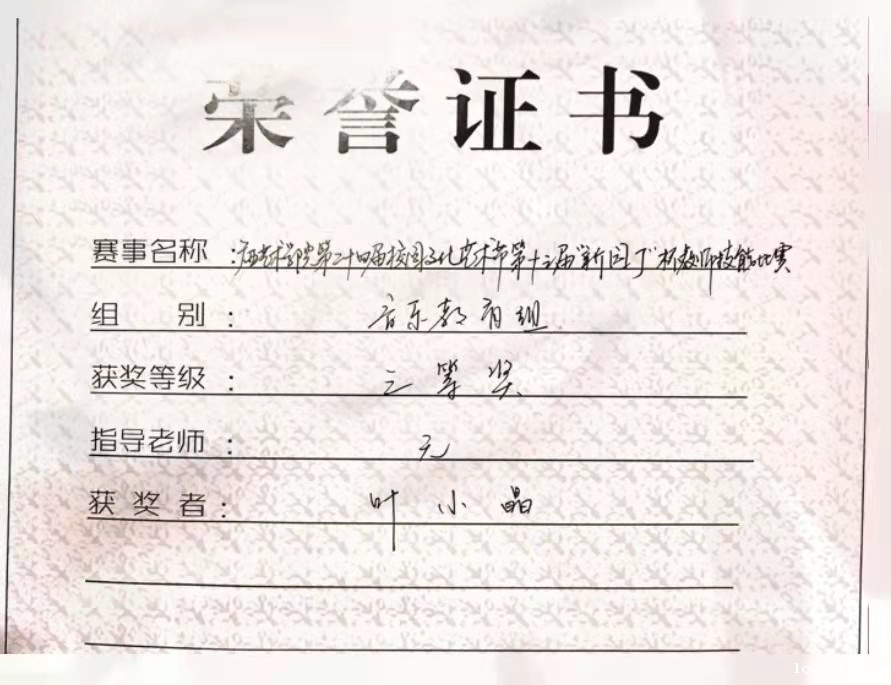 荣誉证书
赛事名称:学院第二十四届校园文化艺术节第十三届"新园丁"杯教师技能比赛
组别:音乐教育组
获奖等级:三等奖
指导老师:无
获奖者:叶小晶